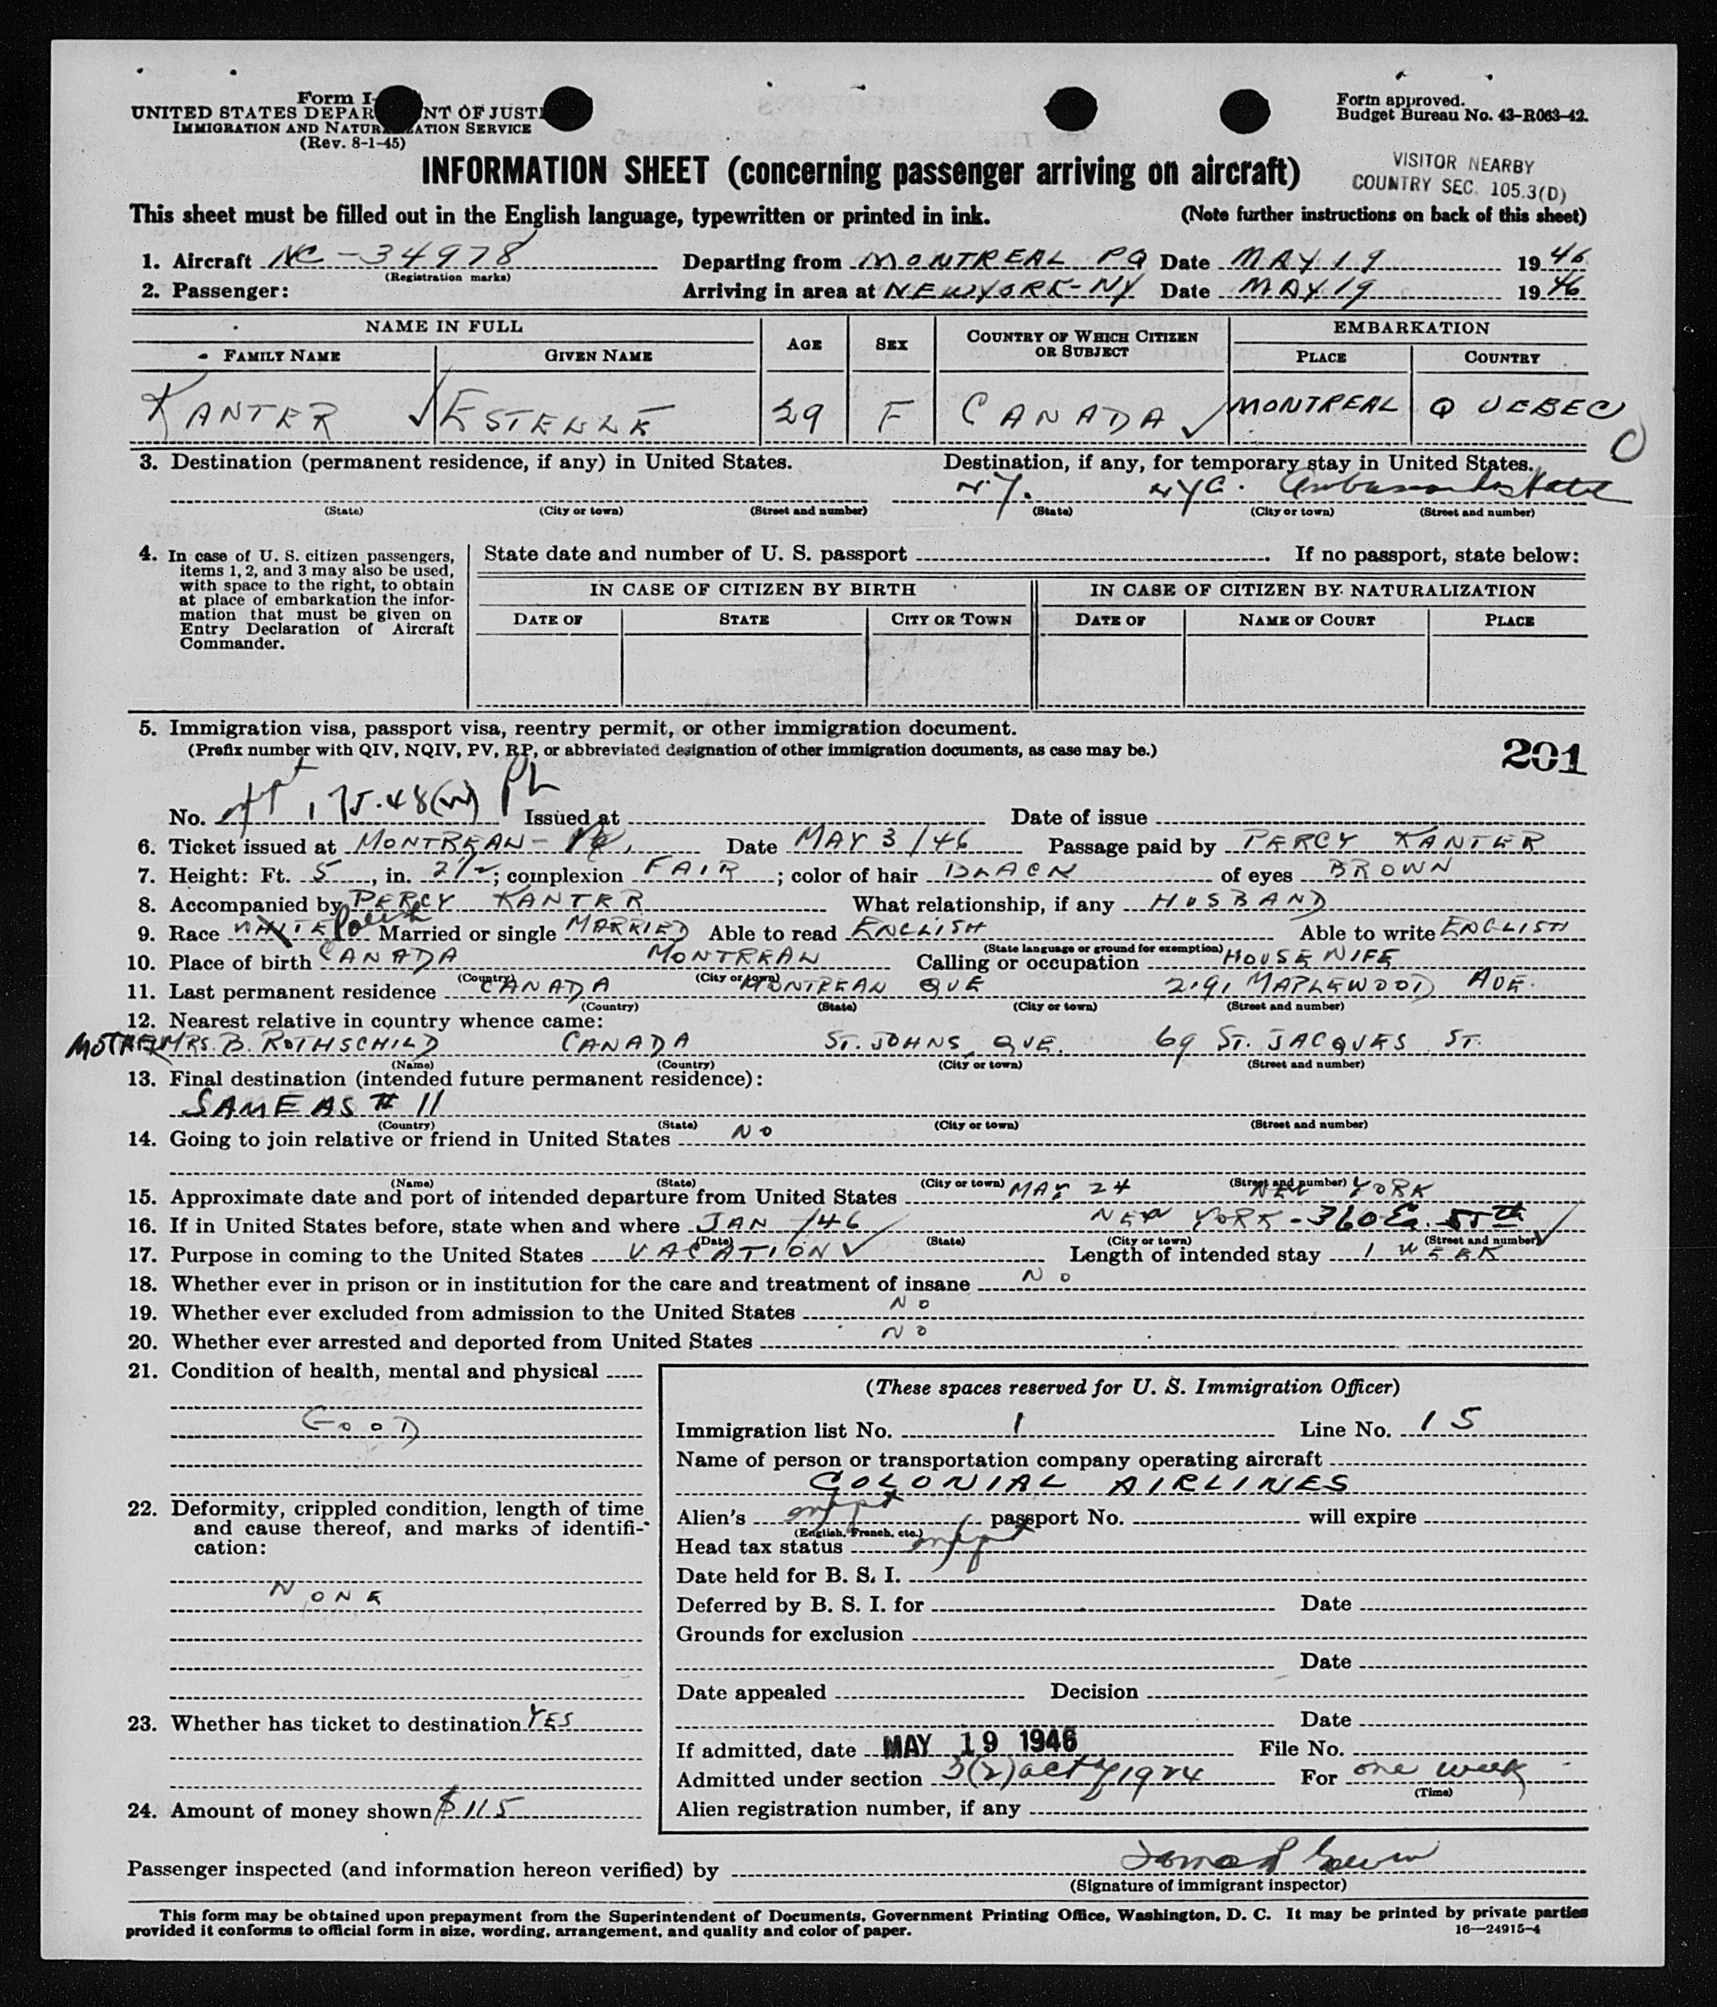 Form I-
UNITED STATES DEPAR NT OF JUSTI
IMMIGRATION AND NATURALIZATION SERVICE
(Rev. 8-1-45)
Form approved.
Budget Bureau No. 43-R063-42.
INFORMATION SHEET (concerning passenger arriving on aircraft)
VISITOR NEARBY
COUNTRY SEC. 105.3(D)
This sheet must be filled out in the English language, typewritten or printed in ink. (Note further instructions on back of this sheet)
1. Aircraft NC-34978 Departing from MONTREAL PQ Date MAY 19 1946
(Registration marks)
2. Passenger: Arriving in area at NEW YORK-NY Date MAY 19 1946
NAME IN FULL AGE SEX COUNTRY OF WHICH CITIZEN OR SUBJECT EMBARKATION
FAMILY NAME GIVEN NAME PLACE COUNTRY
KANTER ESTELLE 29 F CANADA MONTREAL QUEBEC
3. Destination (permanent residence, if any) in United States. Destination, if any, for temporary stay in United States.
N.Y. NYC. Ambassador Hotel
(State) (City or town) (Street and number) (State) (City or town) (Street and number)
4. In case of U. S. citizen passengers, items 1, 2, and 3 may also be used, with space to the right, to obtain at place of embarkation the information that must be given on Entry Declaration of Aircraft Commander.
State date and number of U. S. passport If no passport, state below:
IN CASE OF CITIZEN BY BIRTH IN CASE OF CITIZEN BY NATURALIZATION
DATE OF STATE CITY OR TOWN DATE OF NAME OF COURT PLACE
5. Immigration visa, passport visa, reentry permit, or other immigration document.
(Prefix number with QIV, NQIV, PV, RP, or abbreviated designation of other immigration documents, as case may be.)
201
No. 175.48 Issued at Date of issue
6. Ticket issued at MONTREAL - PQ. Date MAY 3/46 Passage paid by PERCY KANTER
7. Height: Ft. 5, in. 2 1/2; complexion FAIR; color of hair BLACK of eyes BROWN
8. Accompanied by PERCY KANTER What relationship, if any HUSBAND
9. Race WHITE Married or single MARRIED Able to read ENGLISH Able to write ENGLISH
(State language or ground for exemption)
10. Place of birth CANADA MONTREAL Calling or occupation HOUSEWIFE
(Country) (City or town)
11. Last permanent residence CANADA MONTREAL QUE 2191 MAPLEWOOD AVE.
(Country) (State) (City or town) (Street and number)
12. Nearest relative in country whence came:
MOTHER MRS. B. ROTHSCHILD CANADA ST. JOHNS, QUE. 69 ST. JACQUES ST.
(Name) (Country) (City or town) (Street and number)
13. Final destination (intended future permanent residence):
SAME AS # 11
(Country) (State) (City or town) (Street and number)
14. Going to join relative or friend in United States NO
(Name) (State) (City or town) (Street and number)
15. Approximate date and port of intended departure from United States MAY 24 NEW YORK
16. If in United States before, state when and where JAN /46 NEW YORK - 360 E. 55th
(Date) (State) (City or town) (Street and number)
17. Purpose in coming to the United States VACATION Length of intended stay 1 WEEK
18. Whether ever in prison or in institution for the care and treatment of insane NO
19. Whether ever excluded from admission to the United States NO
20. Whether ever arrested and deported from United States NO
21. Condition of health, mental and physical
GOOD
22. Deformity, crippled condition, length of time and cause thereof, and marks of identification:
NONE
23. Whether has ticket to destination YES
24. Amount of money shown $115
(These spaces reserved for U. S. Immigration Officer)
Immigration list No. 1 Line No. 15
Name of person or transportation company operating aircraft
COLONIAL AIRLINES
Alien's passport No. will expire
(English, French, etc.)
Head tax status
Date held for B. S. I.
Deferred by B. S. I. for Date
Grounds for exclusion
Date
Date appealed Decision
Date
If admitted, date MAY 19 1946 File No.
Admitted under section 3(2) act of 1924 For one week
(Time)
Alien registration number, if any
Passenger inspected (and information hereon verified) by
(Signature of immigrant inspector)
This form may be obtained upon prepayment from the Superintendent of Documents, Government Printing Office, Washington, D. C. It may be printed by private parties
provided it conforms to official form in size, wording, arrangement, and quality and color of paper. 16—24915-4